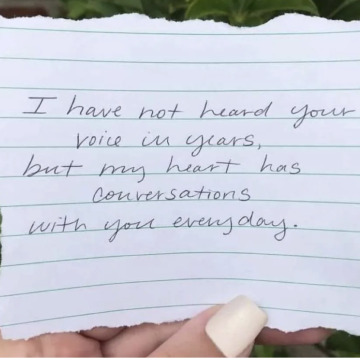 I have not heard your
voice in years,
but my heart has
conversations
with you everyday.